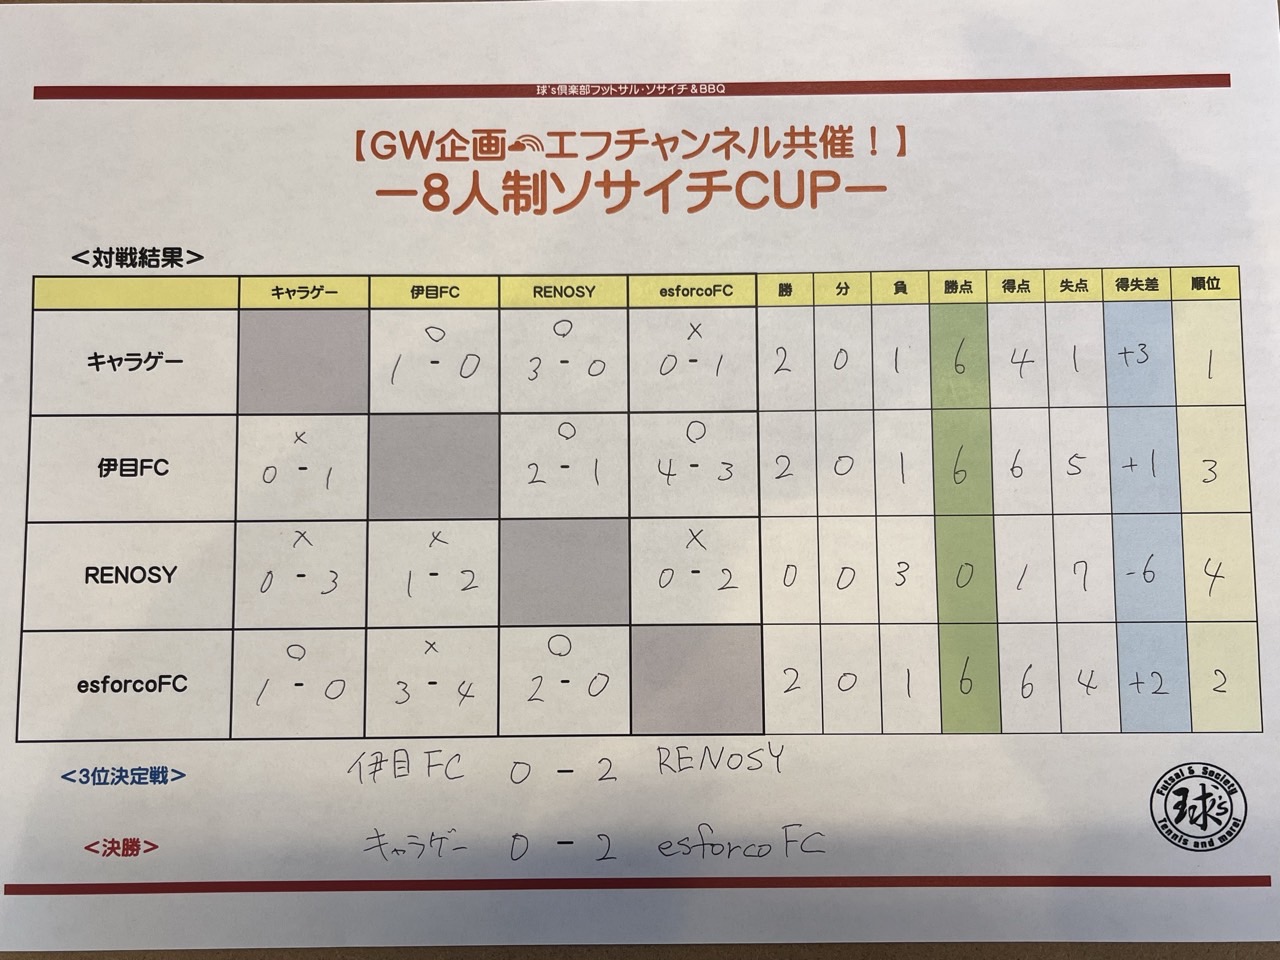 球's倶楽部フットサル・ソサイチ&BBQ
【GW企画エフチャンネル共催！】
ー8人制ソサイチCUPー
＜対戦結果＞
キャラゲー 伊目FC RENOSY esforcoFC 勝 分 負 勝点 得点 失点 得失差 順位
キャラゲー ○ 1 - 0 ○ 3 - 0 × 0 - 1 2 0 1 6 4 1 +3 1
伊目FC × 0 - 1 ○ 2 - 1 ○ 4 - 3 2 0 1 6 6 5 +1 3
RENOSY × 0 - 3 × 1 - 2 × 0 - 2 0 0 3 0 1 7 -6 4
esforcoFC ○ 1 - 0 × 3 - 4 ○ 2 - 0 2 0 1 6 6 4 +2 2
＜3位決定戦＞ 伊目FC 0 - 2 RENOSY
＜決勝＞ キャラゲー 0 - 2 esforcoFC
Futsal & Society
球's
Tennis and more!